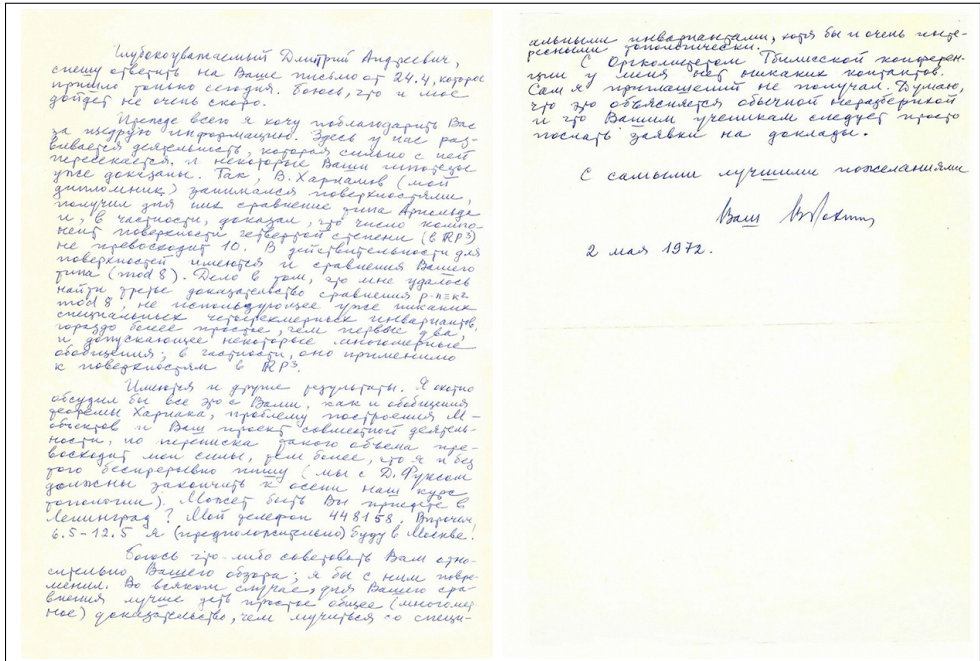 Глубокоуважаемый Дмитрий Андреевич,
спешу ответить на Ваше письмо от 24.4, которое
пришло только сегодня. Боюсь, что и мое
дойдет не очень скоро.
Прежде всего я хочу поблагодарить Вас
за щедрую информацию. Здесь у нас раз-
вивается деятельность, которая сильно с ней
пересекается, и некоторые Ваши гипотезы
уже доказаны. Так, В. Харламов (мой
дипломник) занимался поверхностями,
получил для них сравнение типа Арнольда
и, в частности, доказал, что число компо-
нент поверхности четвертой степени (в RP³)
не превосходит 10. В действительности для
поверхностей имеются и сравнения Вашего
типа (mod 8). Дело в том, что мне удалось
найти третье доказательство сравнения p-n≡k²
mod 8, не использующее уже никаких
специальных четырехмерных инвариантов,
гораздо более простое, чем первые два,
и допускающее некоторые многомерные
обобщения; в частности, оно применимо
к поверхностям в RP³.
Имеются и другие результаты. Я охотно
обсудил бы все это с Вами, как и обобщения
теоремы Харнака, проблему построения М-
объектов и Ваш проект совместной деятель-
ности, но переписка такого объема пре-
восходит мои силы, тем более, что я и без
того беспрерывно пишу (мы с Д. Фуксом
должны закончить к осени наш курс
топологии). Может быть Вы приедете в
Ленинград? Мой телефон 448158. Впрочем,
6.5-12.5 я (предположительно) буду в Москве.
Боюсь что-либо советовать Вам отно-
сительно Вашего обзора; я бы с ним повре-
менил. Во всяком случае, для Вашего сра-
внения лучше дать простое общее (многомер-
ное) доказательство, чем мучиться со специ-
альными инвариантами, хотя бы и очень инте-
ресными топологически.
С Оргкомитетом Тбилисской конферен-
ции у меня нет никаких контактов.
Сам я приглашений не получал. Думаю,
что это объясняется обычной неразберихой
и что Вашим ученикам следует просто
послать заявки на доклады.
С самыми лучшими пожеланиями
Ваш
2 мая 1972.